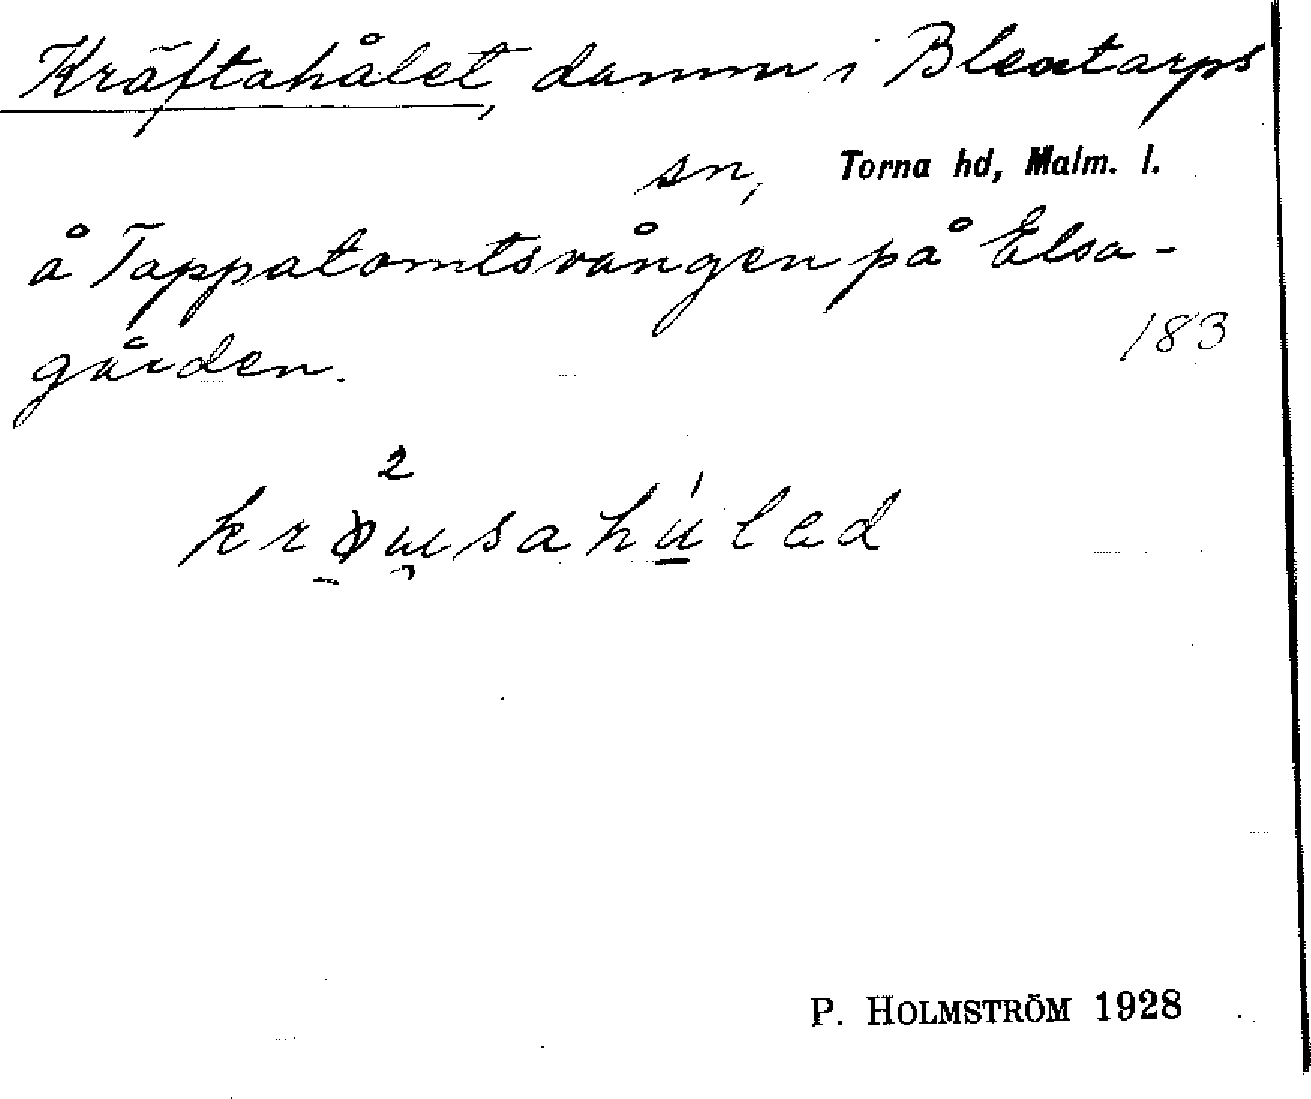 Kräftahålet, damm i Blentarps
sn, Torna hd, Malm. l.
å Tappatomtsvången på Elsa-
gården.
183
2
P. HOLMSTRÖM 1928